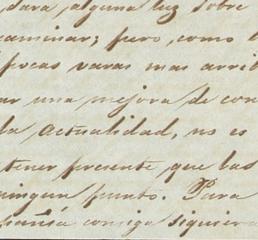 para, alguna luz sobre
caminar; pero, como
pocas varas mas arrib
ar una mejora de con
la actualidad, no es
tener presente que las
ningun punto. Para
consiga siquiera